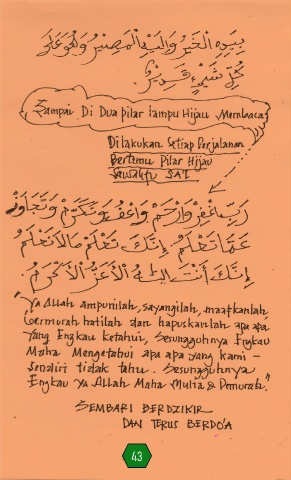 بِيَدِهِ الْخَيْرُ وَإِلَيْهِ الْمَصِيْرُ وَهُوَ عَلَى
كُلِّ شَيْءٍ قَدِيْرٌ.
Sampai Di Dua pilar lampu Hijau Membaca
Dilakukan Setiap Perjalanan
Bertemu Pilar Hijau
Sewaktu SA'I
رَبِّ اغْفِرْ وَارْحَمْ وَاعْفُ وَتَكَرَّمْ وَتَجَاوَزْ
عَمَّا تَعْلَمُ إِنَّكَ تَعْلَمُ مَا لَا نَعْلَمُ
إِنَّكَ أَنْتَ اللهُ الْأَعَزُّ الْأَكْرَمُ.
"Ya Allah ampunilah, sayangilah, maafkanlah,
bermurah hatilah dan hapuskanlah apa apa
yang Engkau ketahui, sesungguhnya Engkau
Maha Mengetahui apa apa yang kami -
sendiri tidak tahu. Sesungguhnya
Engkau Ya Allah Maha Mulia & Pemurah."
SEMBARI BERDZIKIR
DAN TERUS BERDO'A
43